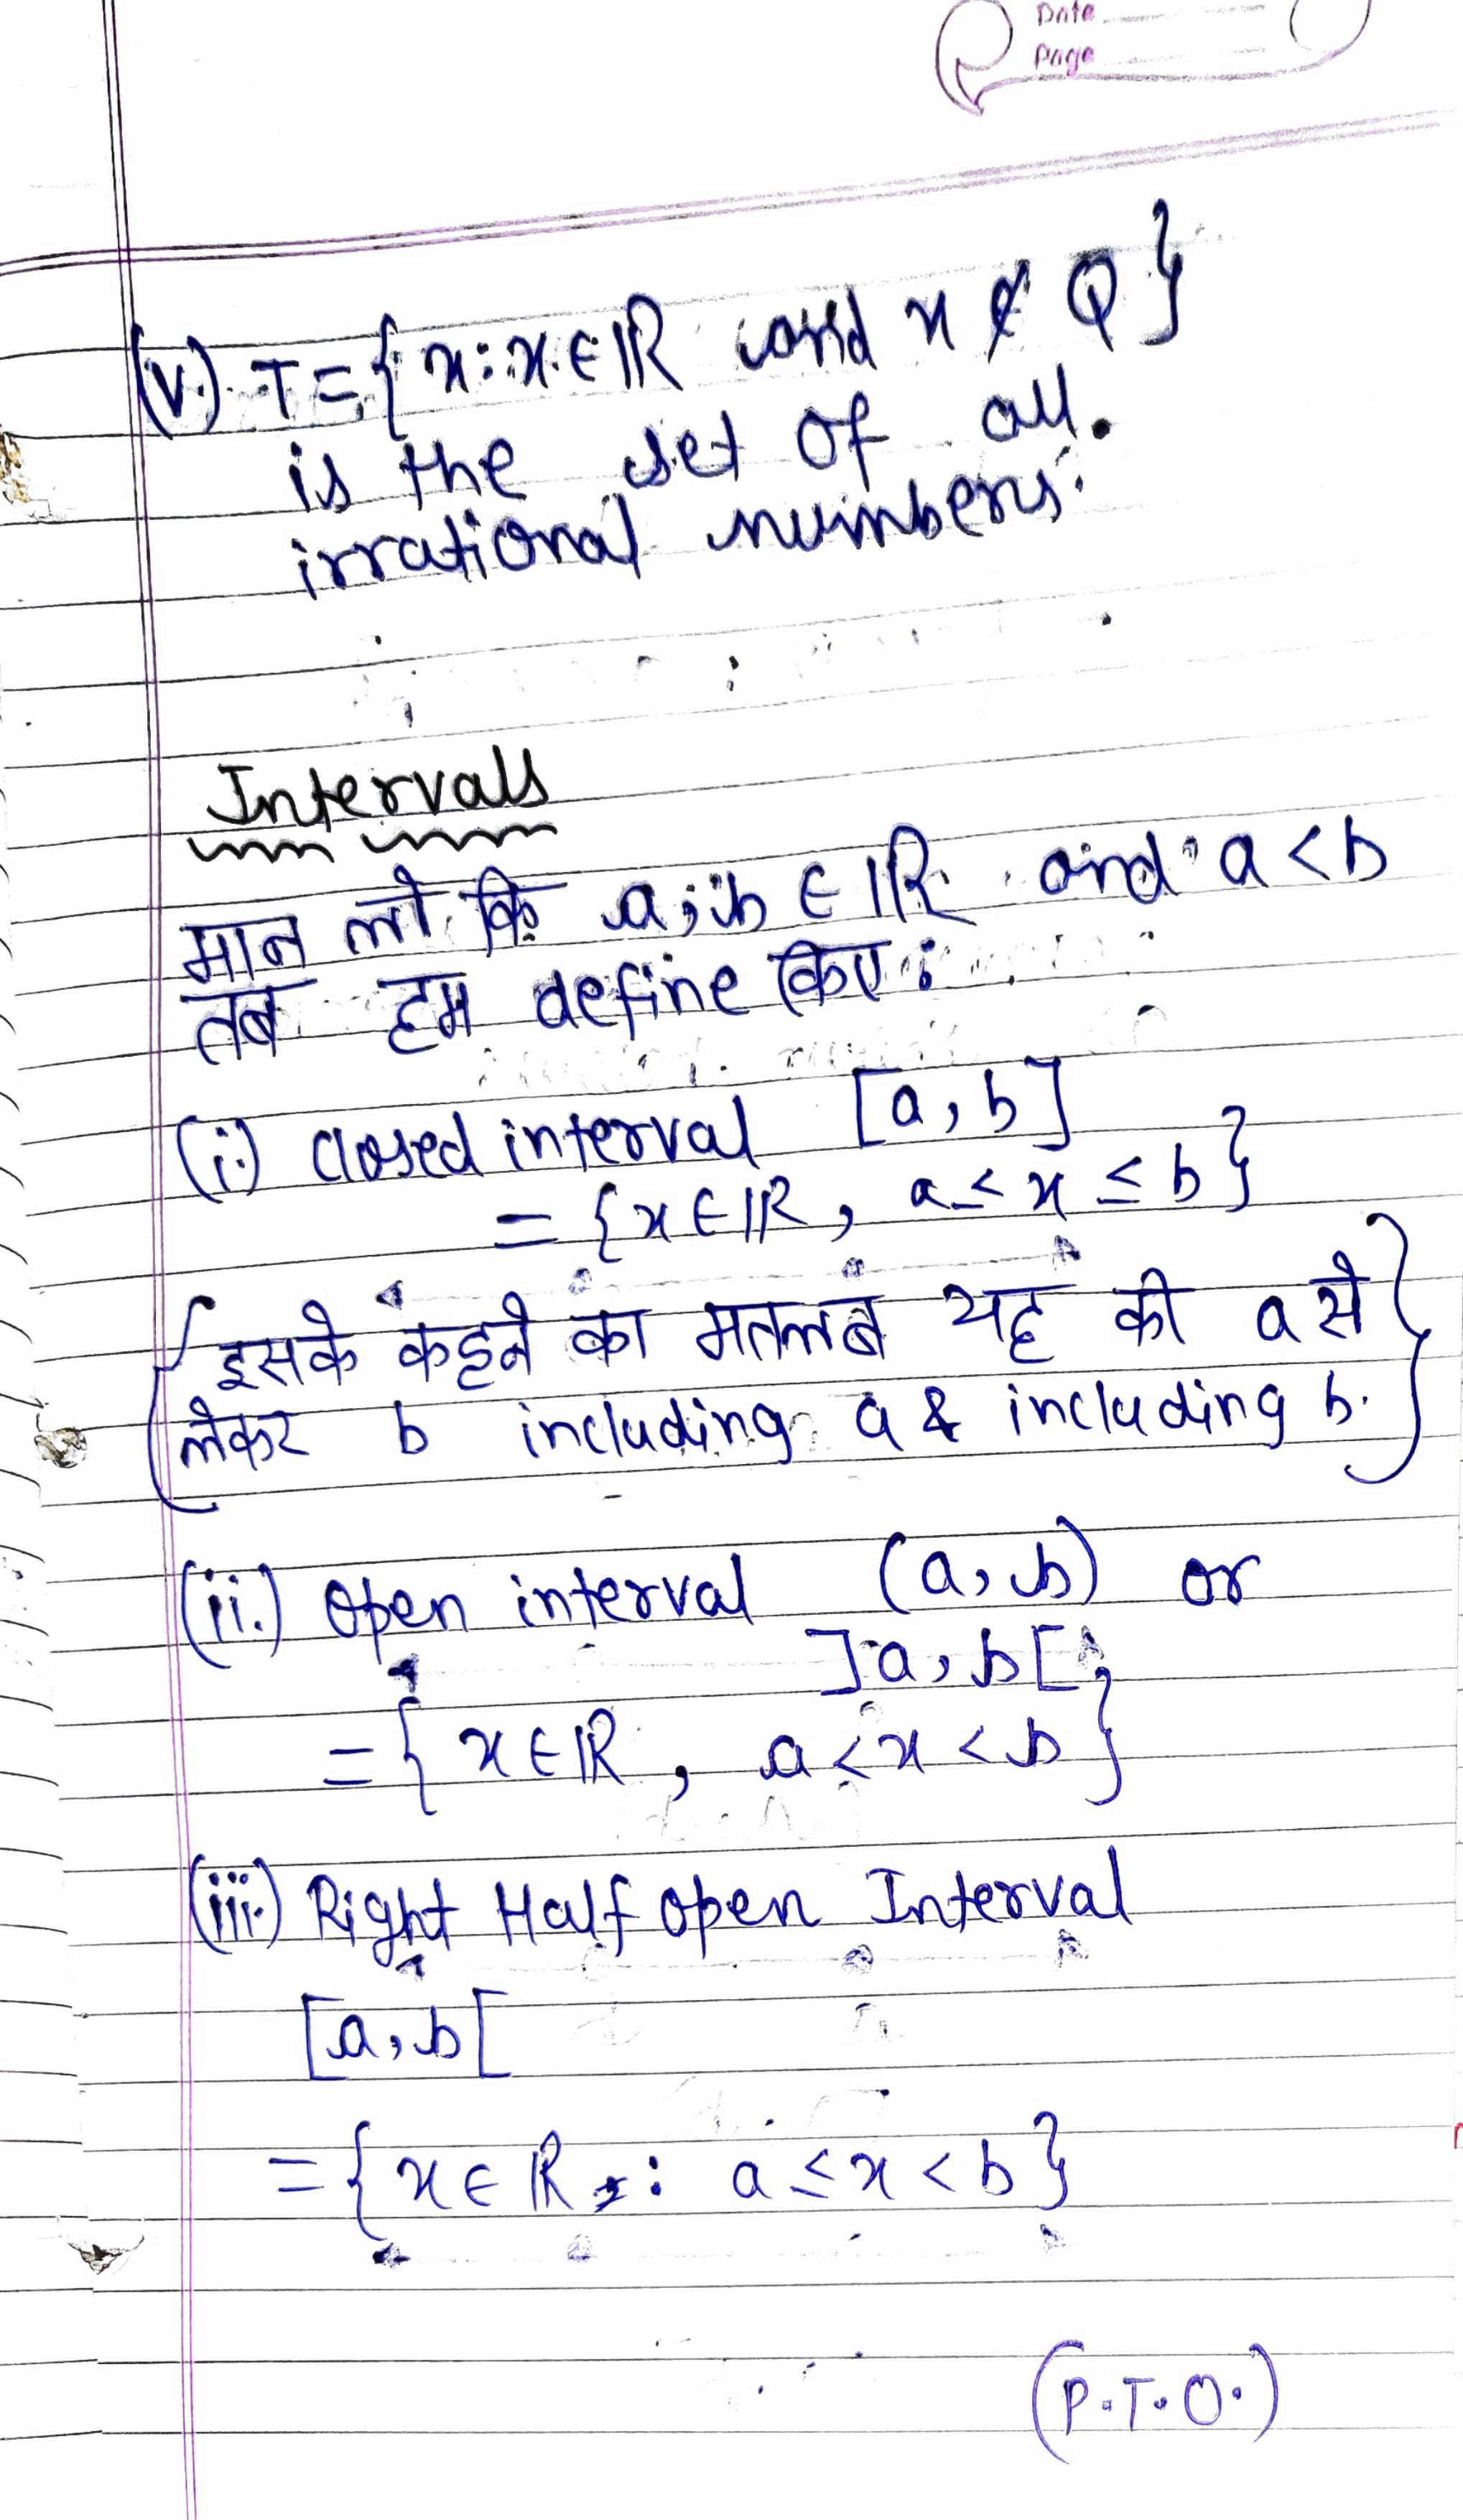 Date
Page
(v.) T = { x : x ∈ ℝ and x ∉ Q }
is the set of all.
irrational numbers.
Intervals
मान लो कि a, b ∈ ℝ and a < b
तब हम define किए :
(i.) closed interval [a, b]
= {x ∈ ℝ, a ≤ x ≤ b}
{ इसके कहने का मतलब यह की a से
लेकर b including a & including b. }
(ii.) open interval (a, b) or
]a, b[
= { x ∈ ℝ, a < x < b }
(iii.) Right Half open Interval
[a, b[
= { x ∈ ℝ : a ≤ x < b }
(P.T.O.)